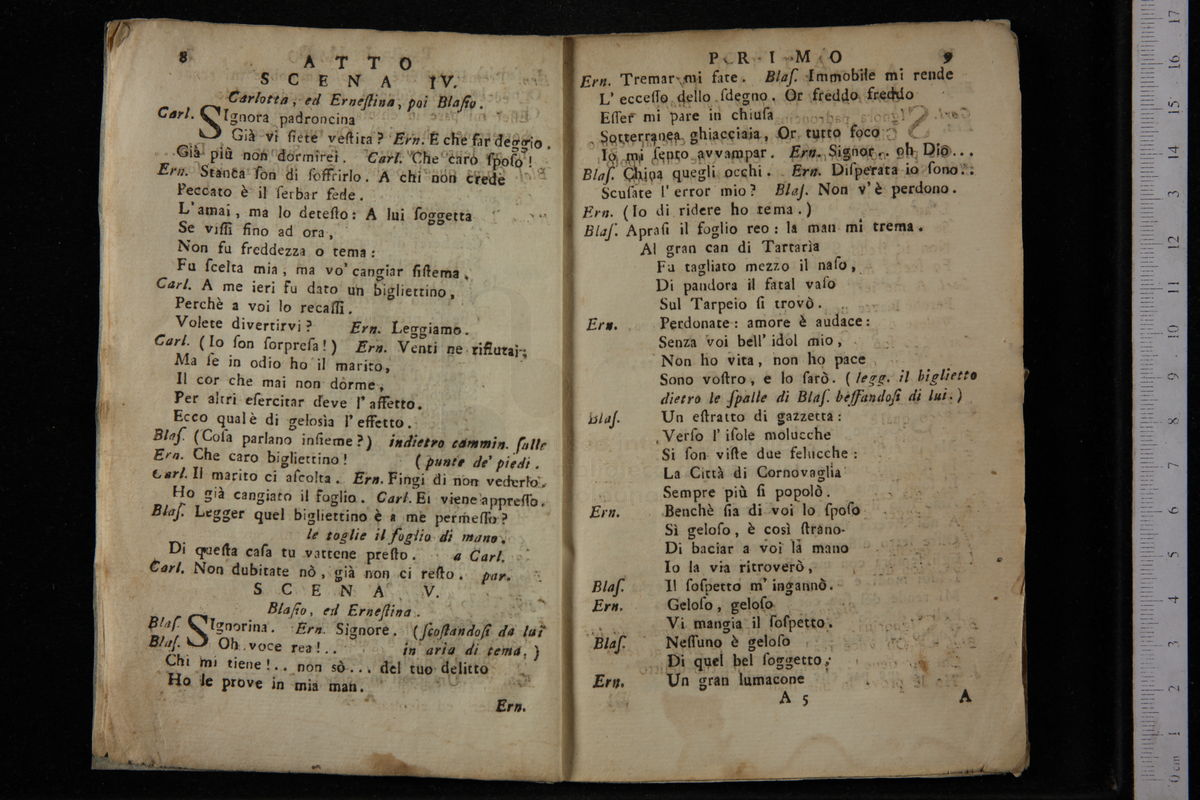 8
ATTO
SCENA IV.
Carlotta, ed Erneſtina, poi Blaſio.
Carl. SIgnora padroncina
Già vi ſiete veſtita? Ern. E che far deggio.
Già più non dormirei. Carl. Che caro ſpoſo!
Ern. Stanca ſon di ſoffrirlo. A chi non crede
Peccato è il ſerbar fede.
L'amai, ma lo deteſto: A lui ſoggetta
Se viſſi fino ad ora,
Non fu freddezza o tema:
Fu ſcelta mia, ma vo' cangiar ſiſtema.
Carl. A me ieri fu dato un bigliettino,
Perchè a voi lo recaſſi.
Volete divertirvi? Ern. Leggiamo.
Carl. (Io ſon ſorpreſa!) Ern. Venti ne rifiutai;
Ma ſe in odio ho il marito,
Il cor che mai non dorme,
Per altri eſercitar deve l'affetto.
Ecco qual è di geloſìa l'effetto.
Blaſ. (Coſa parlano inſieme?) indietro cammin. ſulle
Ern. Che caro bigliettino! (punte de' piedi.
Carl. Il marito ci aſcolta. Ern. Fingi di non vederlo.
Ho già cangiato il foglio. Carl. Ei viene appreſſo.
Blaſ. Legger quel bigliettino è a me permeſſo?
le toglie il foglio di mano.
Di queſta caſa tu vattene preſto. a Carl.
Carl. Non dubitate nò, già non ci reſto. par.
SCENA V.
Blaſio, ed Erneſtina.
Blaſ. SIgnorina. Ern. Signore. (ſcoſtandoſi da lui
Blaſ. Oh voce rea!.. in aria di tema.)
Chi mi tiene!.. non sò... del tuo delitto
Ho le prove in mia man.
Ern.
PRIMO
9
Ern. Tremar mi fate. Blaſ. Immobile mi rende
L'ecceſſo dello ſdegno. Or freddo freddo
Eſſer mi pare in chiuſa
Sotterranea ghiacciaia, Or tutto foco
Io mi ſento avvampar. Ern. Signor.. oh Dio...
Blaſ. China quegli occhi. Ern. Diſperata io ſono..
Scuſate l'error mio? Blaſ. Non v'è perdono.
Ern. (Io di ridere ho tema.)
Blaſ. Apraſi il foglio reo: la man mi trema.
Al gran can di Tartarìa
Fu tagliato mezzo il naſo,
Di pandora il fatal vaſo
Sul Tarpeio ſi trovò.
Ern. Perdonate: amore è audace:
Senza voi bell' idol mio,
Non ho vita, non ho pace
Sono voſtro, e lo ſarò. (legg. il biglietto
dietro le ſpalle di Blaſ. beffandoſi di lui.)
Blaſ. Un eſtratto di gazzetta:
Verſo l'iſole molucche
Si ſon viſte due felucche:
La Città di Cornovaglia
Sempre più ſi popolò.
Ern. Benchè ſia di voi lo ſpoſo
Sì geloſo, è così ſtrano
Di baciar a voi la mano
Io la via ritroverò,
Blaſ. Il ſoſpetto m'ingannò.
Ern. Geloſo, geloſo
Vi mangia il ſoſpetto.
Blaſ. Neſſuno è geloſo
Di quel bel ſoggetto;
Ern. Un gran lumacone
A 5
A
0 cm 1 2 3 4 5 6 7 8 9 10 11 12 13 14 15 16 17